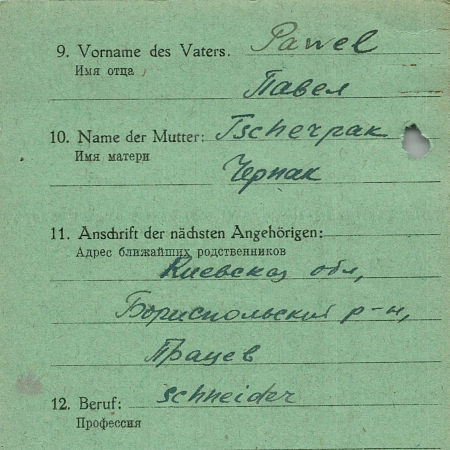 9. Vorname des Vaters. Pawel
Имя отца
Павел
10. Name der Mutter: Tscherpak
Имя матери
Черпак
11. Anschrift der nächsten Angehörigen:
Адрес ближайших родственников
Киевская обл,
Бориспольский р-н,
Працев
12. Beruf: schneider
Профессия